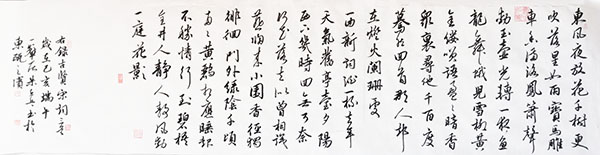 東風夜放花千樹更
吹落星如雨寶馬雕
車香滿路鳳簫聲
動玉壺光轉一夜魚
龍舞蛾兒雪柳黃
金縷笑語盈盈暗香
眾裏尋他千百度
驀然回首那人卻
在燈火闌珊處
一曲新詞酒一杯去年
天氣舊亭臺夕陽
西下幾時回無可奈
何花落去似曾相識
燕歸來小園香徑獨
徘徊門外綠陰千頃
兩兩黃鸝相應睡起
不勝情行到碧梧
金井人靜人靜風動
一庭花影
右錄古賢宋詞三首
亥端午
書於